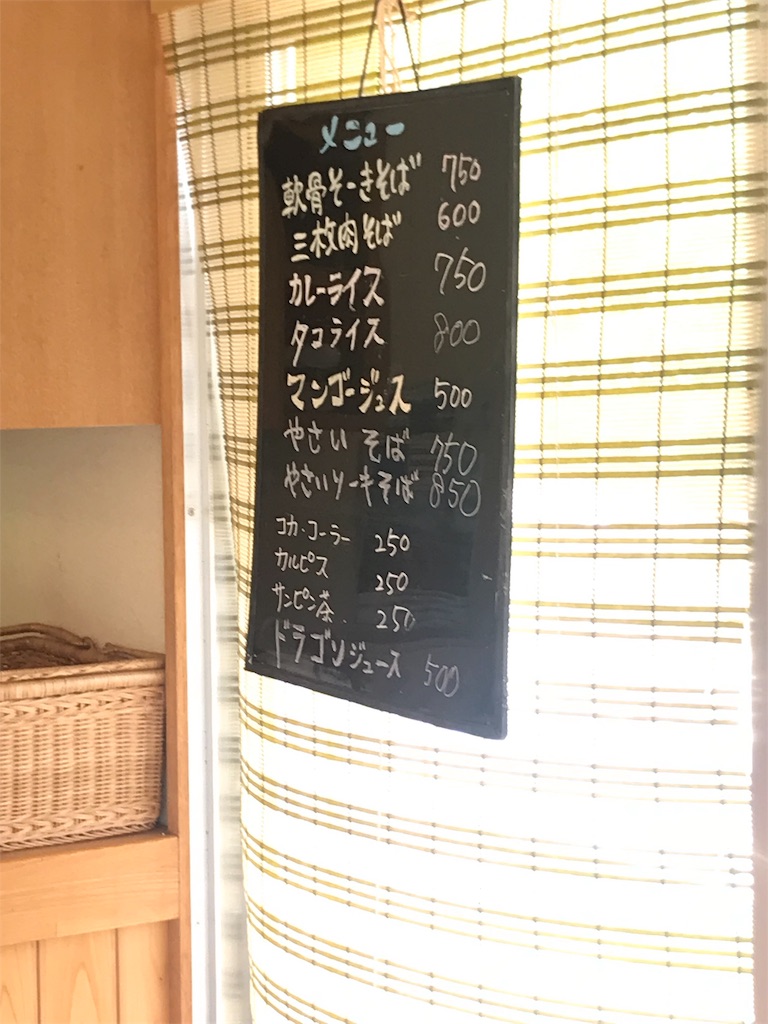 メニュー
軟骨そーきそば 750
三枚肉そば 600
カレーライス 750
タコライス 800
マンゴージュス 500
やさい そば 750
やさいソーキそば 850
コカ・コーラー 250
カルピス 250
サンピン茶 250
ドラゴンジュース 500